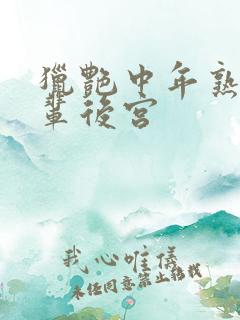 獵艷中年熟
輩後宮
我心唯儀
未经同意禁止转载